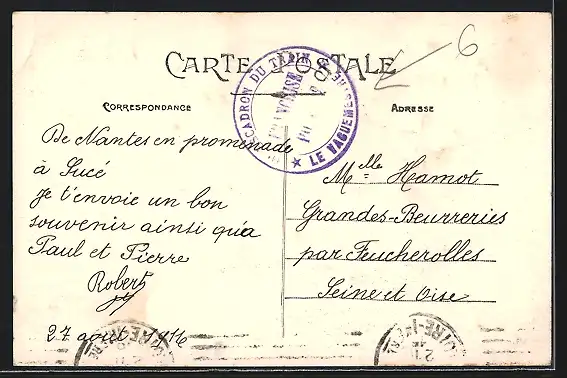 6
CARTE POSTALE
ESCADRON DU TRAIN
LE VAGUEMESTRE
CORRESPONDANCE
ADRESSE
De Nantes en promenade
à Sucé
je t'envoie un bon
souvenir ainsi qu'a
Paul et Pierre
Robert
27 août 1916
Mlle Hamot
Grandes-Beurreries
par Feucherolles
Seine et Oise